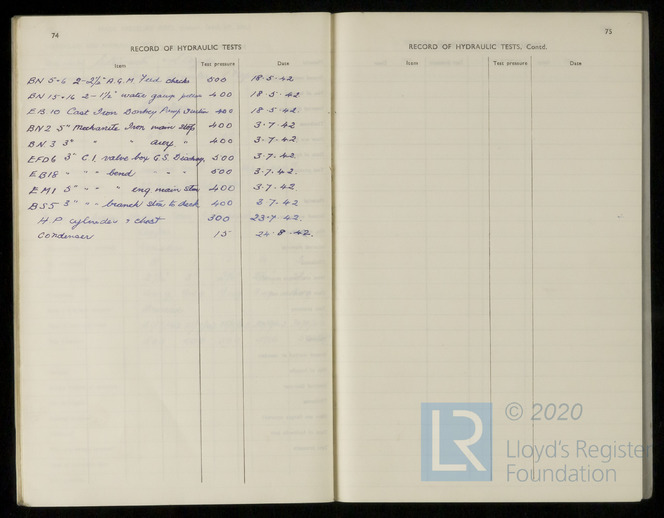 74
RECORD OF HYDRAULIC TESTS
Item Test pressure Date
BN 5-6 2-2½" A.G.M. Feed checks 500 18.5.42
BN 15-16 2-1½" water gauge 400 18.5.42
EB 10 Cast Iron Donkey Pump Suction 400 18.5.42
BN 2 5" Mechanite Iron main stop 400 3.7.42
BN 3 3" " " auxy " 400 3.7.42
EFD6 3" C.I. valve box G.S. 500 3.7.42
EB18 " " " bend " " " 500 3.7.42.
EM1 5" " " eng main stop 400 3.7.42
BS5 3" " " branch stm to deck 400 3 7.42
H.P cylinder & chest 300 23.7.42.
Condenser 15 24.8.42.
75
RECORD OF HYDRAULIC TESTS, Contd.
Item Test pressure Date
LR © 2020
Lloyd's Register
Foundation